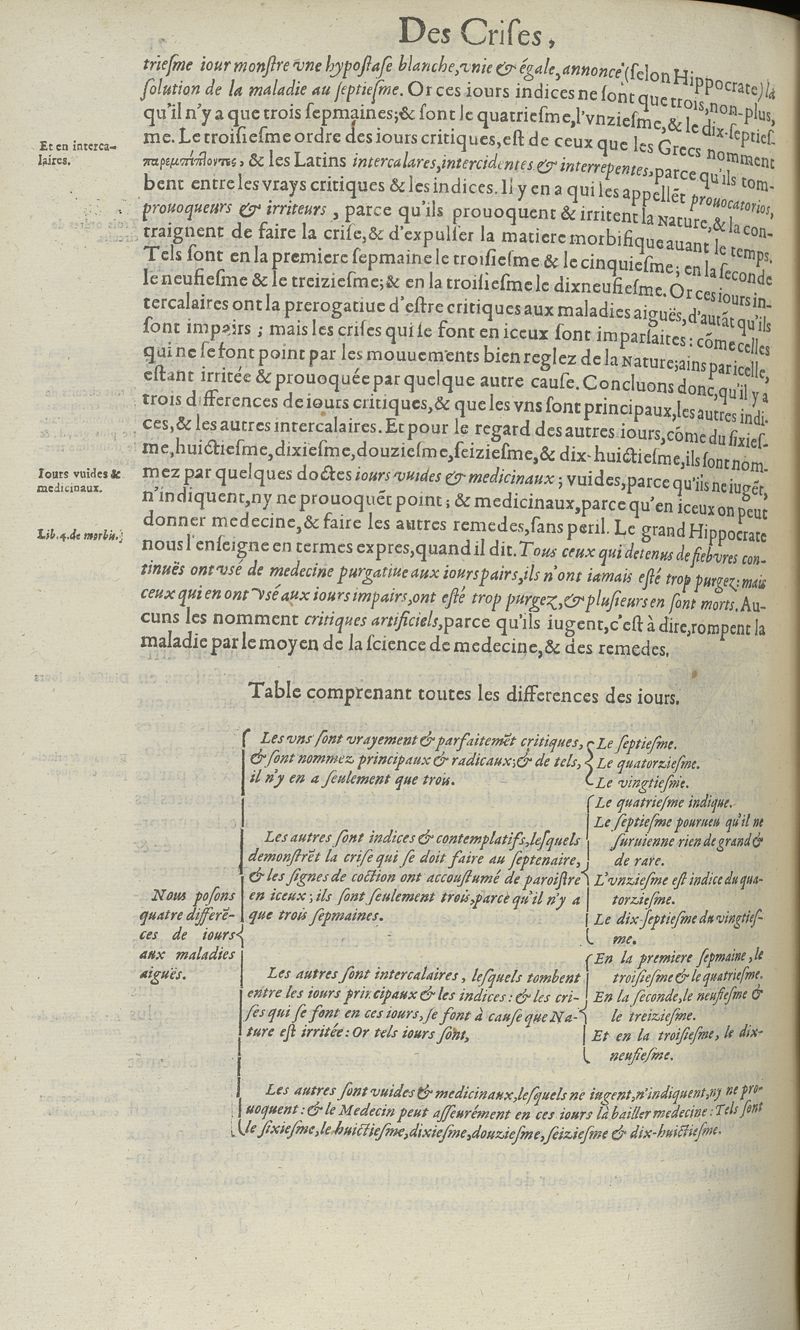 Des Criſes,
trieſme iour monſtre vne hypoſtaſe blanche, vnie & égale, annonce (ſelon Hippocrate) la
ſolution de la maladie au ſeptieſme. Or ces iours indices ne ſont que trois, non-plus,
qu'il n'y a que trois ſepmaines; & ſont le quatrieſme, l'vnzieſme, & le dix-ſeptieſ-
me. Le troiſieſme ordre des iours critiques, eſt de ceux que les Grecs nomment
Et en interca-
laires.
& les Latins intercalares, intercidentes & interrepentes, parce qu'ils tom-
bent entre les vrays critiques & les indices. Il y en a qui les appellẽt prouocatorios,
prouoqueurs & irriteurs, parce qu'ils prouoquent & irritent la Nature, & la con-
traignent de faire la criſe, & d'expulſer la matiere morbifique auant le temps.
Tels ſont en la premiere ſepmaine le troiſieſme & le cinquieſme; en la ſeconde
le neufieſme & le treizieſme; & en la troiſieſme le dixneufieſme. Or ces iours in-
tercalaires ont la prerogatiue d'eſtre critiques aux maladies aiguës, d'autãt qu'ils
ſont impairs; mais les criſes qui ſe font en iceux ſont imparfaites: cóme celles
qui ne ſe font point par les mouuements bien reglez de la Nature; ains par icelle,
eſtant irritée & prouoquée par quelque autre cauſe. Concluons donc, qu'il y a
trois differences de iours critiques, & que les vns ſont principaux, les autres indi-
ces, & les autres intercalaires. Et pour le regard des autres iours, cóme du ſixieſ-
me, huictieſme, dixieſme, douzieſme, ſeizieſme, & dix-huictieſme, ils ſont nom-
Iours vuides &
medicinaux.
mez par quelques doctes iours vuides & medicinaux; vuides, parce qu'ils ne iugẽt,
n'indiquent, ny ne prouoquẽt point; & medicinaux, parce qu'en iceux on peut
donner medecine, & faire les autres remedes, ſans peril. Le grand Hippocrate
Lib. 4. de morbis.
nous l'enſeigne en termes expres, quand il dit. Tous ceux qui detenus de fiebvres con-
tinuës ont vsé de medecine purgatiue aux iours pairs, ils n'ont iamais eſté trop purgez: mais
ceux qui en ont vsé aux iours impairs, ont eſté trop purgez, & pluſieurs en ſont morts. Au-
cuns les nomment critiques artificiels, parce qu'ils iugent, c'eſt à dire, rompent la
maladie par le moyen de la ſcience de medecine, & des remedes.
Table comprenant toutes les differences des iours.
Nous poſons
quatre differẽ-
ces de iours
aux maladies
aiguës.
Les vns ſont vrayement & parfaitemẽt critiques,
& ſont nommez principaux & radicaux; & de tels,
il n'y en a ſeulement que trois.
Le ſeptieſme.
Le quatorzieſme.
Le vingtieſme.
Les autres ſont indices & contemplatifs, leſquels
demonſtrẽt la criſe qui ſe doit faire au ſeptenaire,
& les ſignes de coction ont accouſtumé de paroiſtre
en iceux; ils ſont ſeulement trois, parce qu'il n'y a
que trois ſepmaines.
Le quatrieſme indique.
Le ſeptieſme pourueu qu'il ne
ſuruienne rien de grand &
de rare.
L'vnzieſme eſt indice du qua-
torzieſme.
Le dix-ſeptieſme du vingtieſ-
me.
Les autres ſont intercalaires, leſquels tombent
entre les iours principaux & les indices: & les cri-
ſes qui ſe font en ces iours, ſe font à cauſe que Na-
ture eſt irritée: Or tels iours ſont,
En la premiere ſepmaine, le
troiſieſme & le quatrieſme.
En la ſeconde, le neufieſme &
le treizieſme.
Et en la troiſieſme, le dix-
neufieſme.
Les autres ſont vuides & medicinaux, leſquels ne iugent, n'indiquent, ny ne pro-
uoquent: & le Medecin peut aſſeurément en ces iours là bailler medecine: Tels ſont
le ſixieſme, le huictieſme, dixieſme, douzieſme, ſeizieſme & dix-huictieſme.